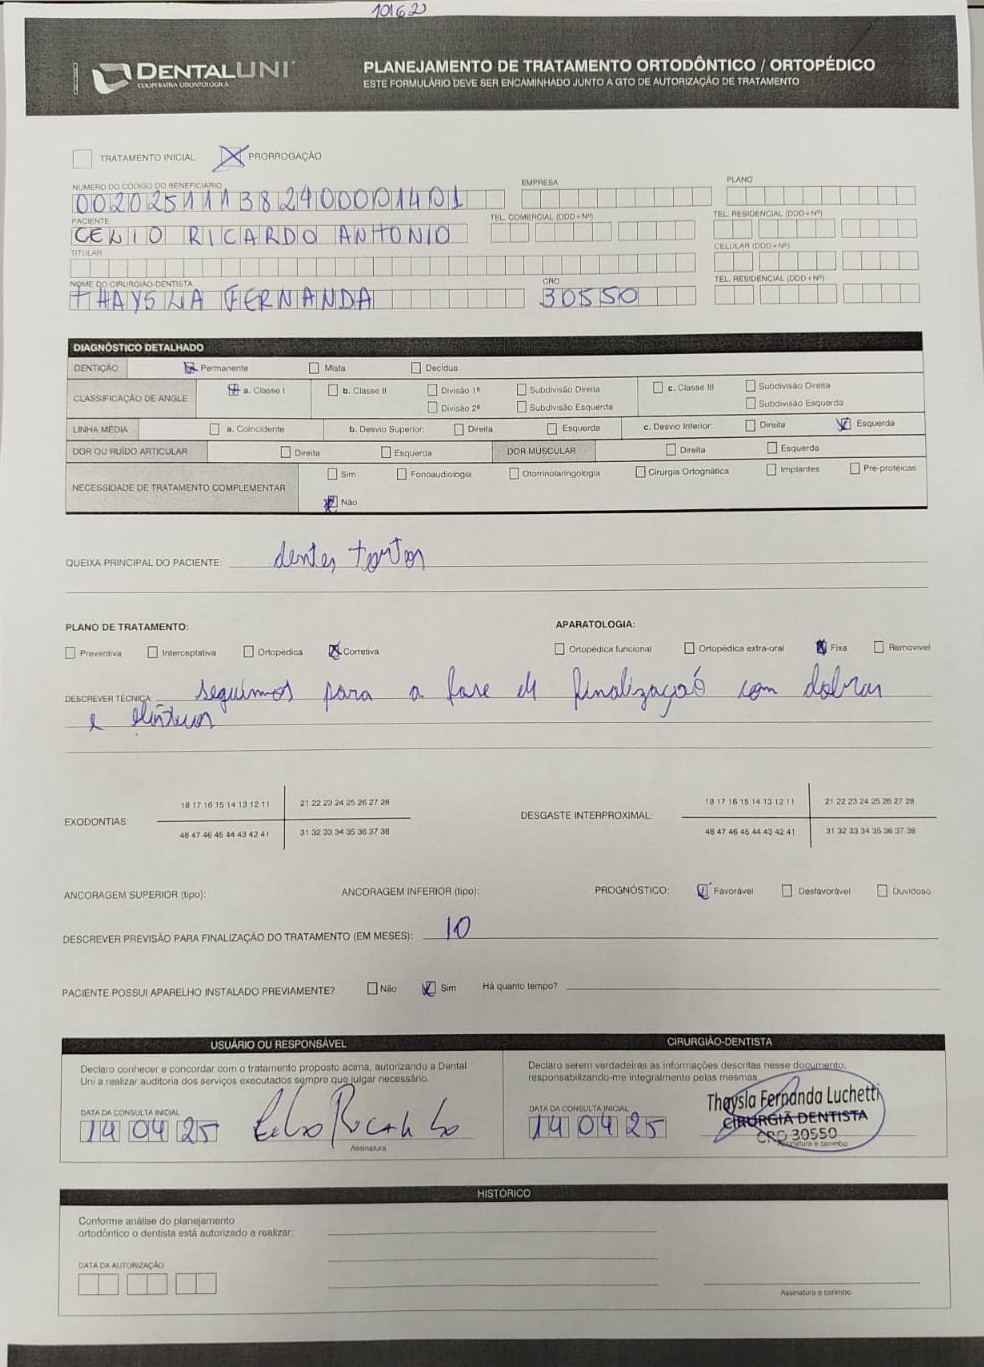 10162
DENTALUNI
COOPERATIVA ODONTOLÓGICA
PLANEJAMENTO DE TRATAMENTO ORTODÔNTICO / ORTOPÉDICO
ESTE FORMULÁRIO DEVE SER ENCAMINHADO JUNTO A GTO DE AUTORIZAÇÃO DE TRATAMENTO
TRATAMENTO INICIAL X PRORROGAÇÃO
NUMERO DO CÓDIGO DO BENEFICIÁRIO EMPRESA PLANO
00202511138240000 1401
PACIENTE TEL. COMERCIAL (DDD+Nº) TEL. RESIDENCIAL (DDD+Nº)
CELIO RICARDO ANTONIO
TITULAR CELULAR (DDD+Nº)
NOME DO CIRURGIÃO-DENTISTA CRO TEL. RESIDENCIAL (DDD+Nº)
THAYSLA FERNANDA 30550
DIAGNÓSTICO DETALHADO
DENTIÇÃO Permanente Mista Decídua
CLASSIFICAÇÃO DE ANGLE a. Classe I b. Classe II Divisão 1ª Subdivisão Direita c. Classe III Subdivisão Direita
Divisão 2ª Subdivisão Esquerda Subdivisão Esquerda
LINHA MÉDIA a. Coincidente b. Desvio Superior: Direita Esquerda c. Desvio Inferior: Direita Esquerda
DOR OU RUÍDO ARTICULAR Direita Esquerda DOR MUSCULAR Direita Esquerda
NECESSIDADE DE TRATAMENTO COMPLEMENTAR Sim Fonoaudiologia Otorrinolaringologia Cirurgia Ortognática Implantes Pré-protéticas
Não
QUEIXA PRINCIPAL DO PACIENTE: dentes tortos
PLANO DE TRATAMENTO: APARATOLOGIA:
Preventiva Interceptativa Ortopedica Corretiva Ortopédica funcional Ortopédica extra-oral Fixa Removível
DESCREVER TÉCNICA: seguimos para a fase de finalização com dobras
e elásticos
18 17 16 15 14 13 12 11 21 22 23 24 25 26 27 28 18 17 16 15 14 13 12 11 21 22 23 24 25 26 27 28
EXODONTIAS: DESGASTE INTERPROXIMAL:
48 47 46 45 44 43 42 41 31 32 33 34 35 36 37 38 48 47 46 45 44 43 42 41 31 32 33 34 35 36 37 38
ANCORAGEM SUPERIOR (tipo): ANCORAGEM INFERIOR (tipo): PROGNÓSTICO: Favorável Desfavorável Duvidoso
DESCREVER PREVISÃO PARA FINALIZAÇÃO DO TRATAMENTO (EM MESES): 10
PACIENTE POSSUI APARELHO INSTALADO PREVIAMENTE? Não Sim Há quanto tempo?
USUÁRIO OU RESPONSÁVEL
Declaro conhecer e concordar com o tratamento proposto acima, autorizando a Dental
Uni a realizar auditoria dos serviços executados sempre que julgar necessário.
DATA DA CONSULTA INICIAL
14 04 25
Assinatura
CIRURGIÃO-DENTISTA
Declaro serem verdadeiras as informações descritas nesse documento,
responsabilizando-me integralmente pelas mesmas
DATA DA CONSULTA INICIAL
14 04 25
Thaysla Fernanda Luchetti
CIRURGIÃ DENTISTA
CRO 30550
Assinatura e carimbo
HISTÓRICO
Conforme análise do planejamento
ortodôntico o dentista está autorizado a realizar:
DATA DA AUTORIZAÇÃO
Assinatura e carimbo